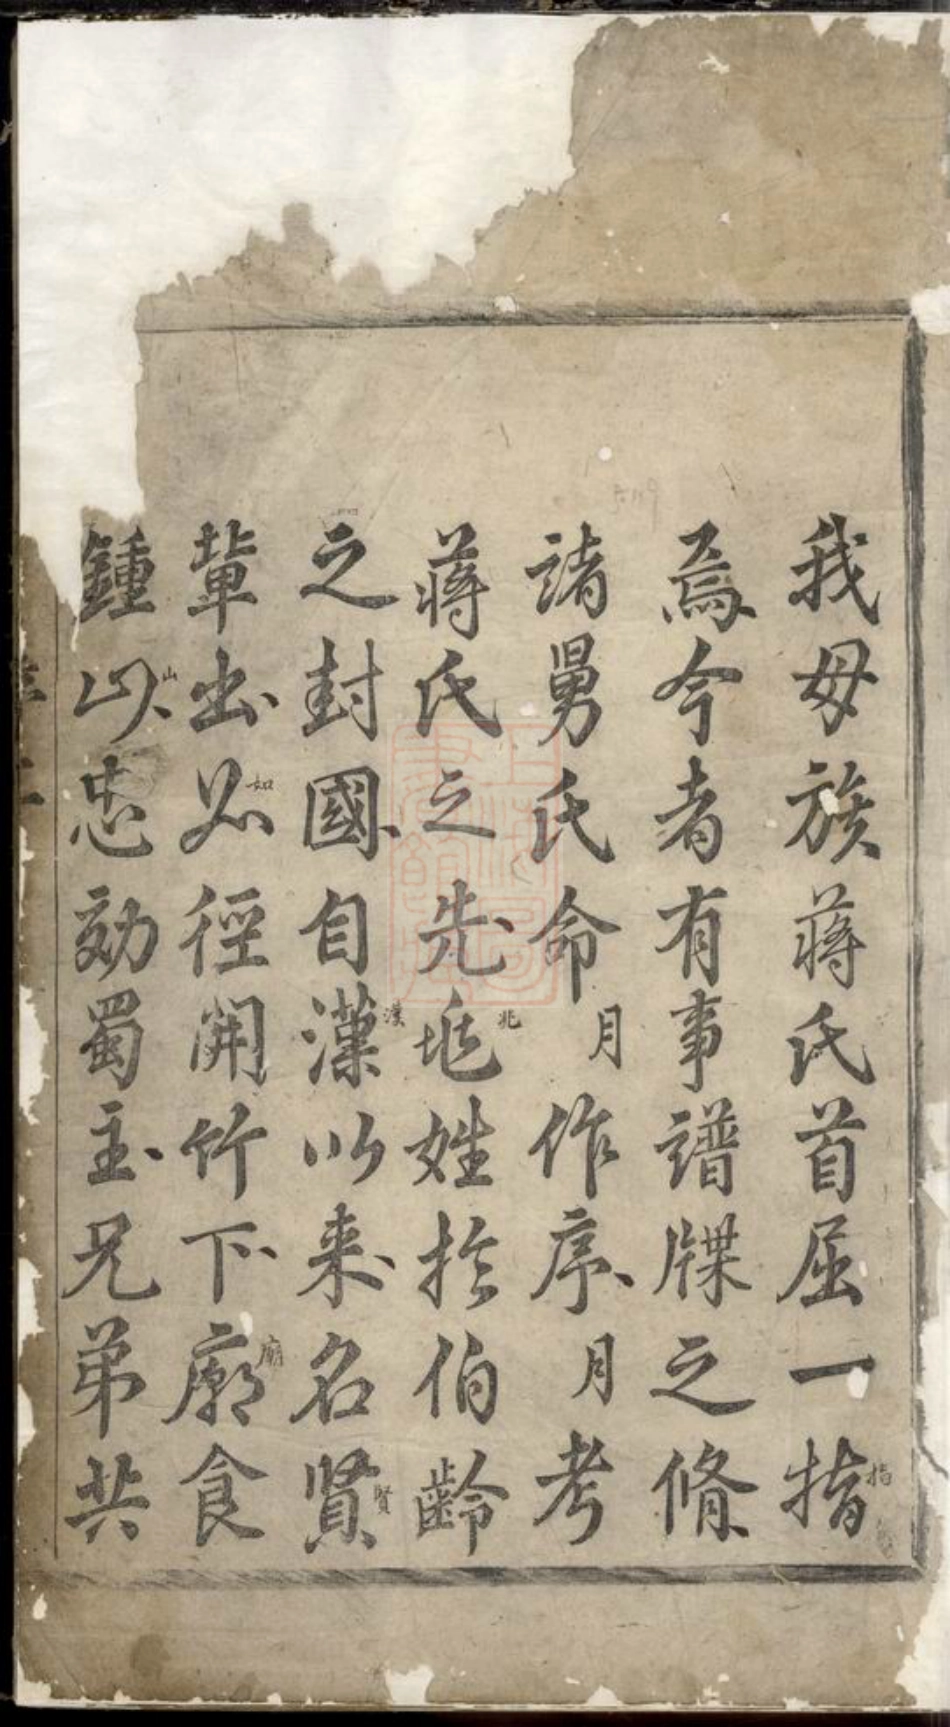 我母族蔣氏首屈一指
指
焉今者有事譜牒之脩
諸舅氏命月作序月考
蔣氏之先垗姓於伯齡
兆
之封國自漢以来名賢
漢
賢
輩出如徑開竹下廟食
如
廟
鍾山忠効蜀主兄弟共
山